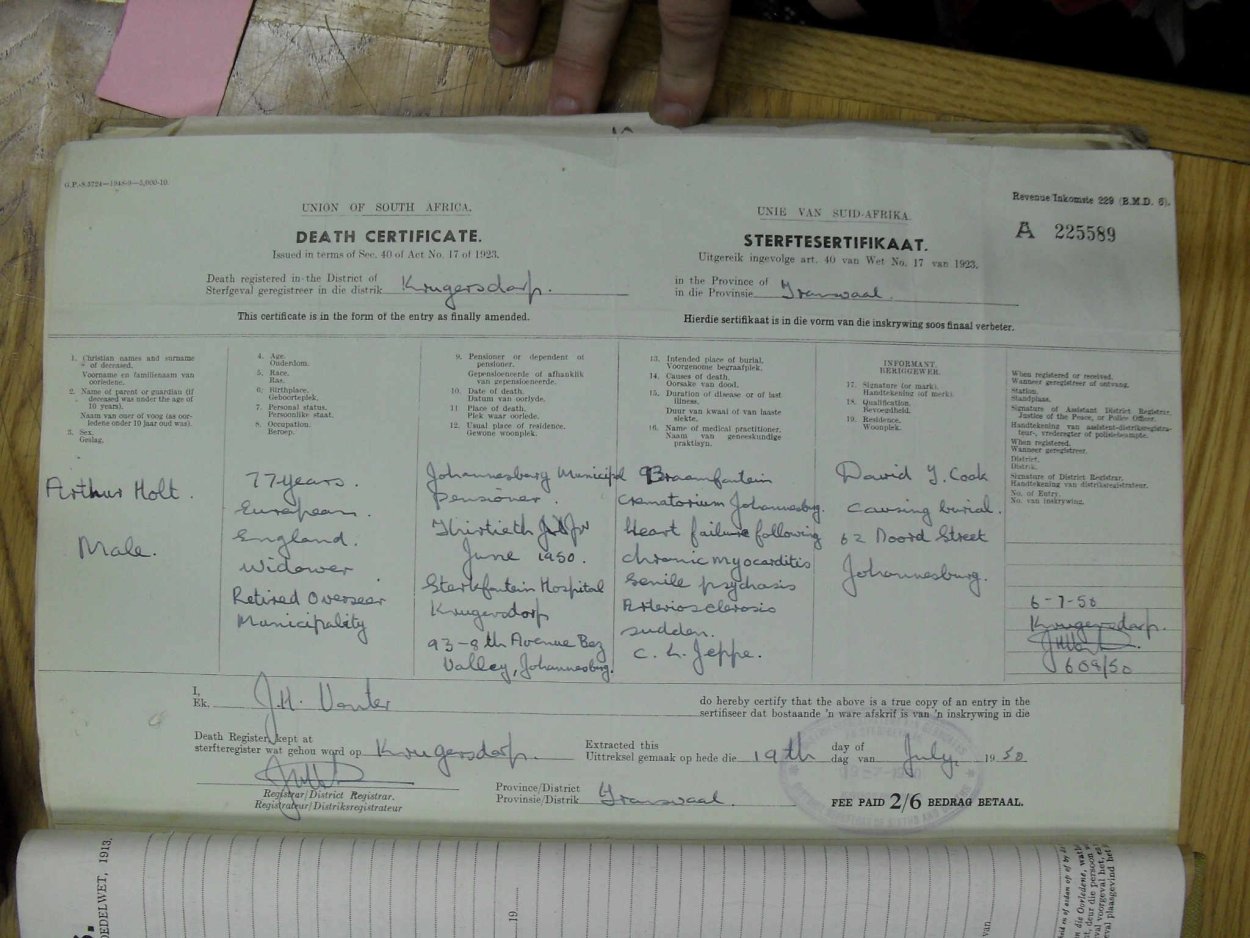 G.P.-S.3724—1948-9—5,000-10.
Revenue/Inkomste 229 (B.M.D. 6).
A 225589
UNION OF SOUTH AFRICA.
DEATH CERTIFICATE.
Issued in terms of Sec. 40 of Act No. 17 of 1923.
UNIE VAN SUID-AFRIKA
STERFTESERTIFIKAAT.
Uitgereik ingevolge art. 40 van Wet No. 17 van 1923.
Death registered in the District of
Sterfgeval geregistreer in die distrik Krugersdorp.
in the Province of
in die Provinsie Transvaal.
This certificate is in the form of the entry as finally amended.
Hierdie sertifikaat is in die vorm van die inskrywing soos finaal verbeter.
1. Christian names and surname
of deceased.
Voornaam en familienaam van
oorledene.
2. Name of parent or guardian (if
deceased was under the age of
10 years).
Naam van ouer of voog (as oor-
ledene onder 10 jaar oud was).
3. Sex.
Geslag.
4. Age.
Ouderdom.
5. Race.
Ras.
6. Birthplace.
Geboorteplek.
7. Personal status.
Persoonlike staat.
8. Occupation.
Beroep.
9. Pensioner or dependent of
pensioner.
Gepensioeneerde of afhanklik
van gepensioeneerde.
10. Date of death.
Datum van oorlyde.
11. Place of death.
Plek waar oorlede.
12. Usual place of residence.
Gewone woonplek.
13. Intended place of burial.
Voorgenome begraafplek.
14. Causes of death.
Oorsake van dood.
15. Duration of disease or of last
illness.
Duur van kwaal of van laaste
siekte.
16. Name of medical practitioner.
Naam van geneeskundige
praktisyn.
INFORMANT
BERIGGEWER.
17. Signature (or mark).
Handtekening (of merk).
18. Qualification.
Bevoegdheid.
19. Residence.
Woonplek.
When registered or received.
Wanneer geregistreer of ontvang.
Station.
Standplaas.
Signature of Assistant District Registrar,
Justice of the Peace, or Police Officer.
Handtekening van assistent-distriksregistra-
teur-, vrederegter of polisiebeampte.
When registered.
Wanneer geregistreer.
District.
Distrik.
Signature of District Registrar.
Handtekening van distriksregistrateur.
No. of Entry.
No. van inskrywing.
Arthur Holt.
Male.
77 years.
European.
England.
Widower
Retired Overseer
Municipality
Johannesburg Municipal
Pensioner
Thirtieth
June 1950.
Sterkfontein Hospital
Krugersdorp
93-8th Avenue Bez
Valley, Johannesburg.
Braamfontein
Crematorium Johannesburg.
Heart failure following
chronic myocarditis
Senile psychosis
Arteriosclerosis
sudden.
C. L. Jeppe.
David J. Cook
causing burial.
62 Noord Street
Johannesburg.
6-7-50
Krugersdorp.
608/50
I,
Ek, J.H. Venter
do hereby certify that the above is a true copy of an entry in the
sertifiseer dat bostaande 'n ware afskrif is van 'n inskrywing in die
Death Register kept at
sterfteregister wat gehou word op Krugersdorp.
Extracted this
Uittreksel gemaak op hede die 19th day of
dag van July, 1950
Registrar/District Registrar.
Registrateur/Distriksregistrateur
Province/District
Provinsie/Distrik Transvaal.
FEE PAID 2/6 BEDRAG BETAAL.
DELWET, 1913.
19
van